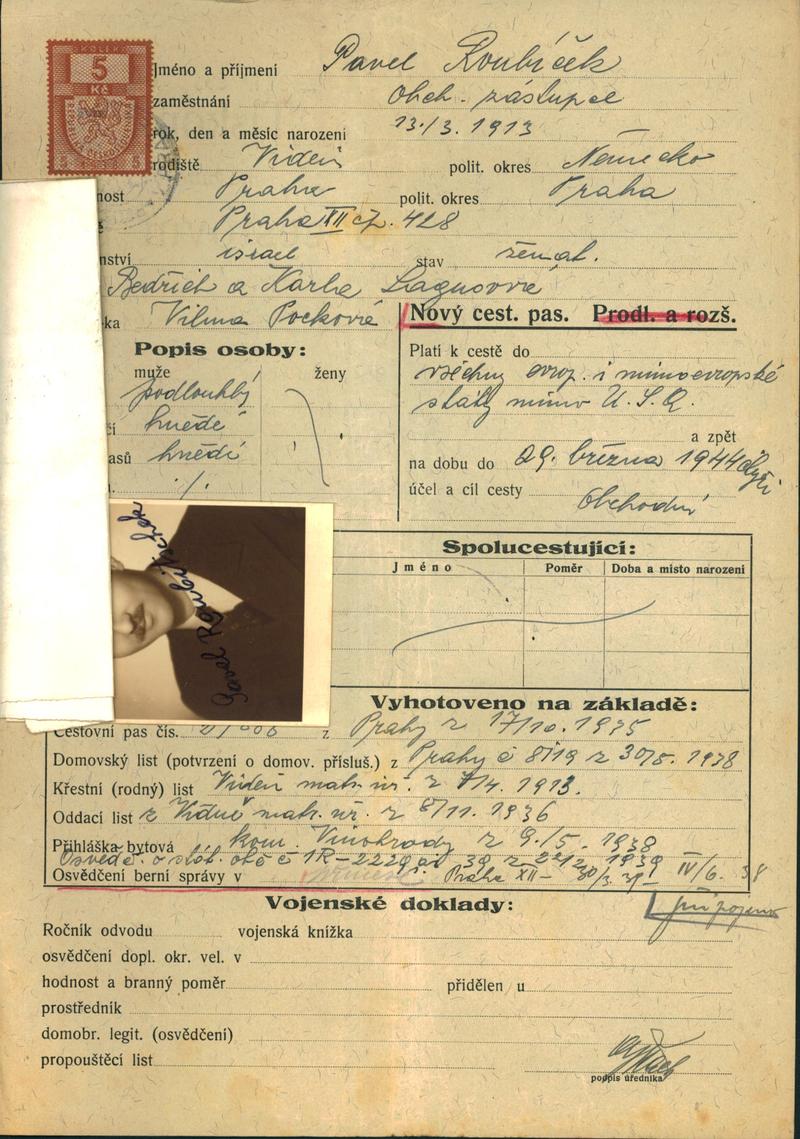 KOLEK
5
Kč
Jméno a příjmení Pavel Roubíček
zaměstnání Obch. zástupce
rok, den a měsíc narození 13./3. 1913
rodiště Vídeň polit. okres Německo
nost Praha polit. okres Praha
Praha XII čp. 428
nství israel stav ženat.
Bedřich a Karla Lagusová
ka Vilma Pocková
Nový cest. pas. Prodl. a rozš.
Popis osoby:
muže ženy
podlouhlý
čí hnědé
asů hnědé
Platí k cestě do
všechny evrop. i mimoevropské
státy mimo U. S. A.
a zpět
na dobu do 29. března 1944
účel a cíl cesty Obchodní
Pavel Roubitschek
Spolucestující:
Jméno Poměr Doba a místo narození
Vyhotoveno na základě:
Cestovní pas čís. z Prahy z 17/10. 1935
Domovský list (potvrzení o domov. přísluš.) z Prahy č 8119 z 30/8. 1938
Křestní (rodný) list Vídeň mat. nř. z /4. 1913.
Oddací list z Vídně mat. nř. z 8/11. 1936
Přihláška bytová kom. Vinohrady z 9./5. 1938
Osvěd. o stát. obč č 1R-2229 39 z 1939
Osvědčení berní správy v Praha XII- 30/3. 39- IV/6. 38
připojeno
Vojenské doklady:
Ročník odvodu vojenská knížka
osvědčení dopl. okr. vel. v
hodnost a branný poměr přidělen u
prostředník
domobr. legit. (osvědčení)
propouštěcí list
podpis úředníka